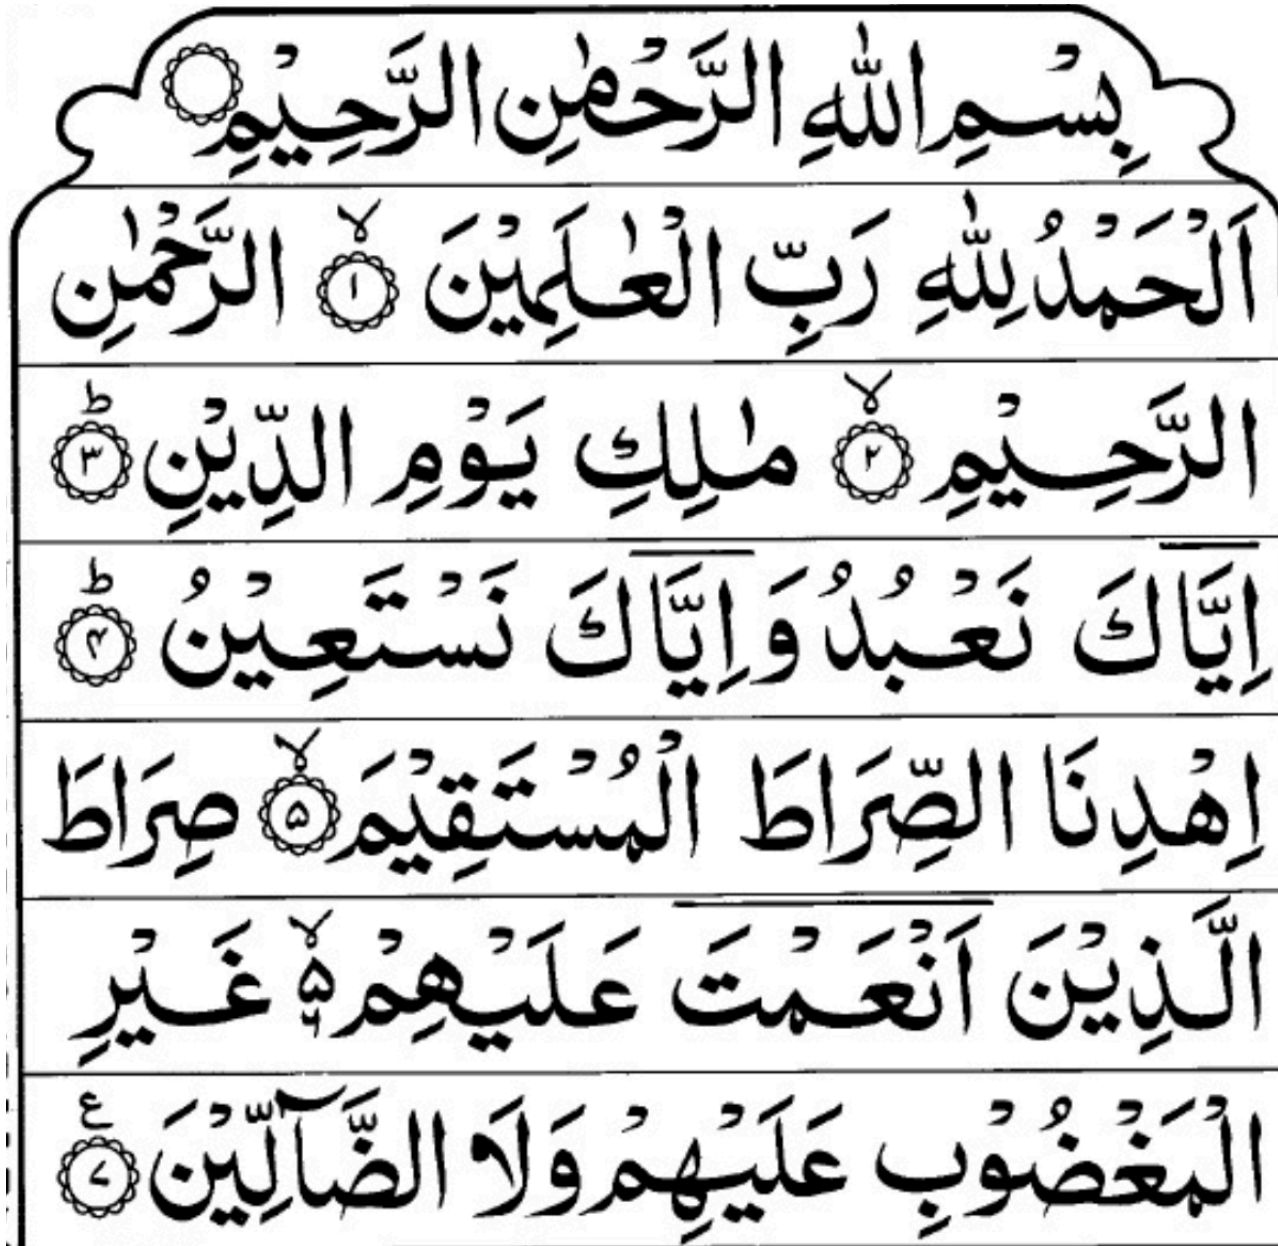 بِسْمِ اللّٰهِ الرَّحْمٰنِ الرَّحِيْمِ ۝
اَلْحَمْدُ لِلّٰهِ رَبِّ الْعٰلَمِيْنَ ۙ‏﴿۱﴾ الرَّحْمٰنِ
الرَّحِيْمِ ۙ‏﴿۲﴾ مٰلِكِ يَوْمِ الدِّيْنِ ؕ‏﴿۳﴾
اِيَّاكَ نَعْبُدُ وَ اِيَّاكَ نَسْتَعِيْنُ ؕ‏﴿۴﴾
اِهْدِنَا الصِّرَاطَ الْمُسْتَقِيْمَ ۙ‏﴿۵﴾ صِرَاطَ
الَّذِيْنَ اَنْعَمْتَ عَلَيْهِمْ ۙ۵ ۶ غَيْرِ
الْمَغْضُوْبِ عَلَيْهِمْ وَلَا الضَّآلِّيْنَ ع﴿۷﴾